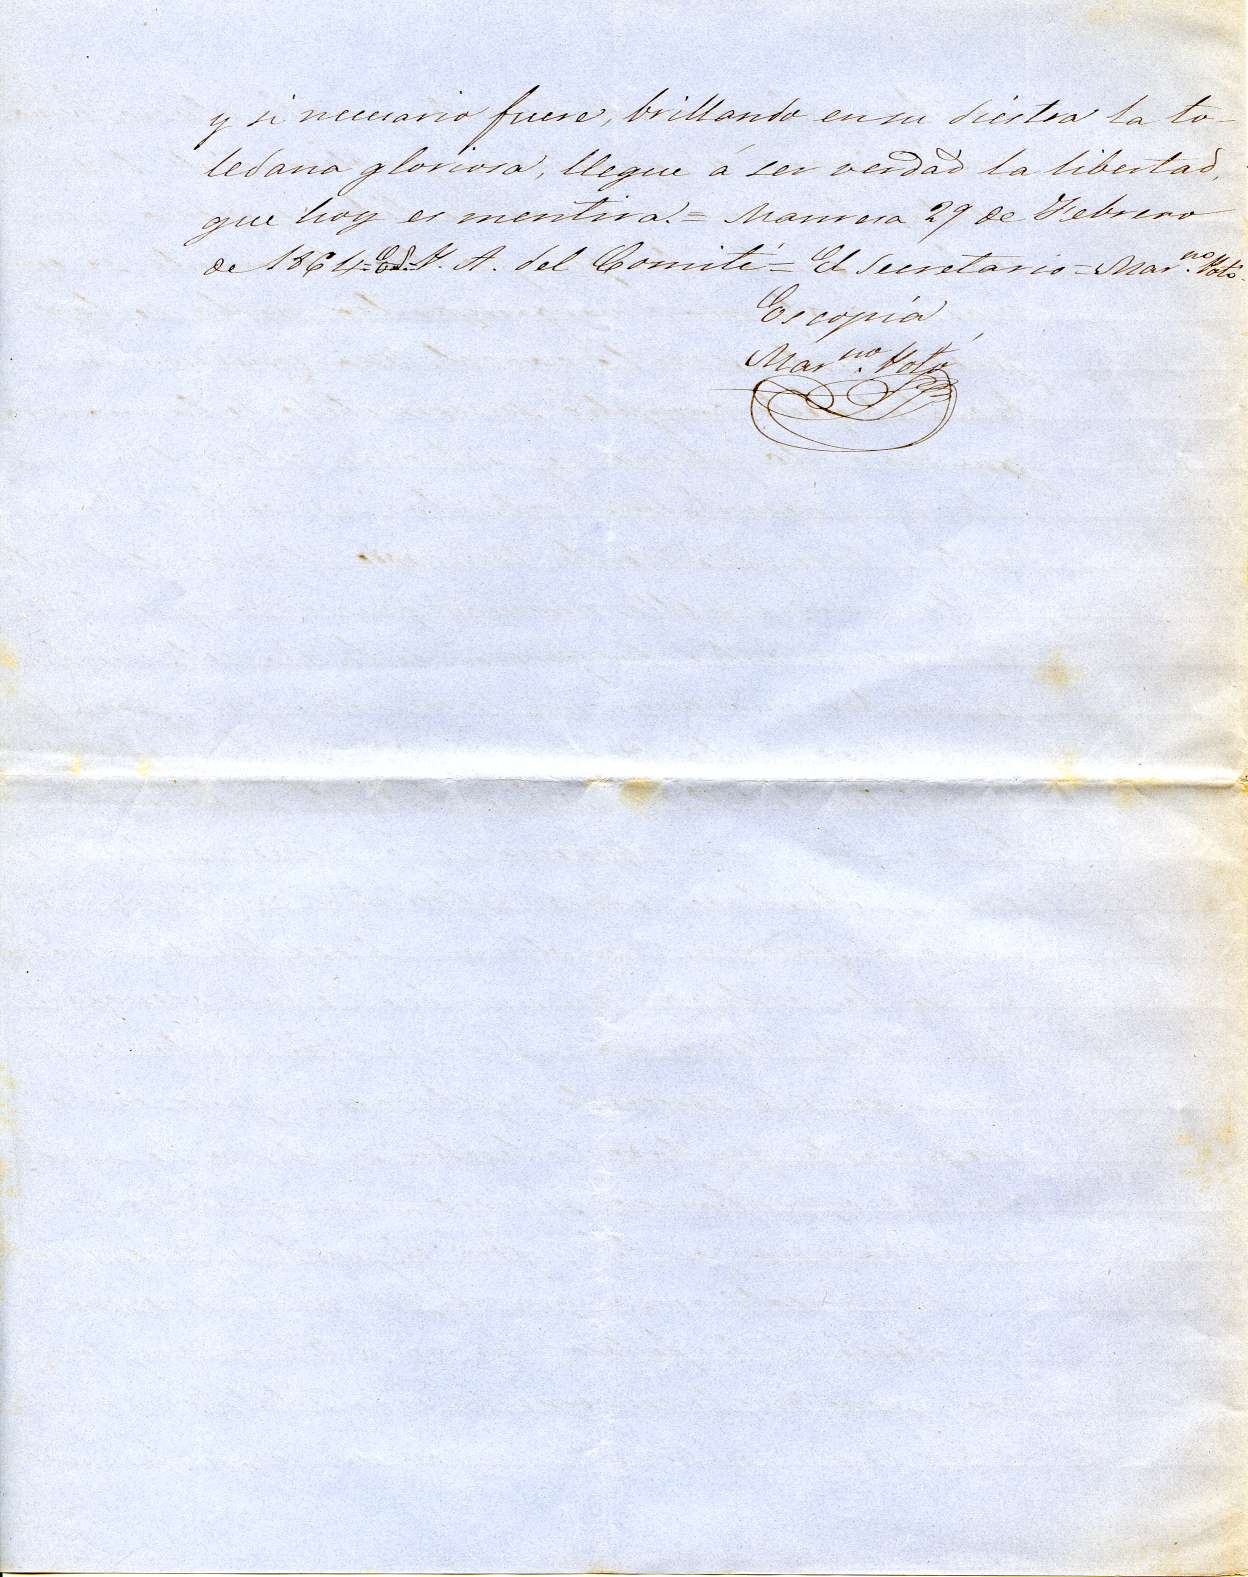 y si necesario fuere, brillando en su diestra la to-
ledana gloriosa, llegue á ser verdad la libertad,
que hoy es mentira. = Manresa 29 de Febrero
de 1864 = P. A. del Comité = El Secretario = Mar.no Potó.
Es copia
Mar.no Potó